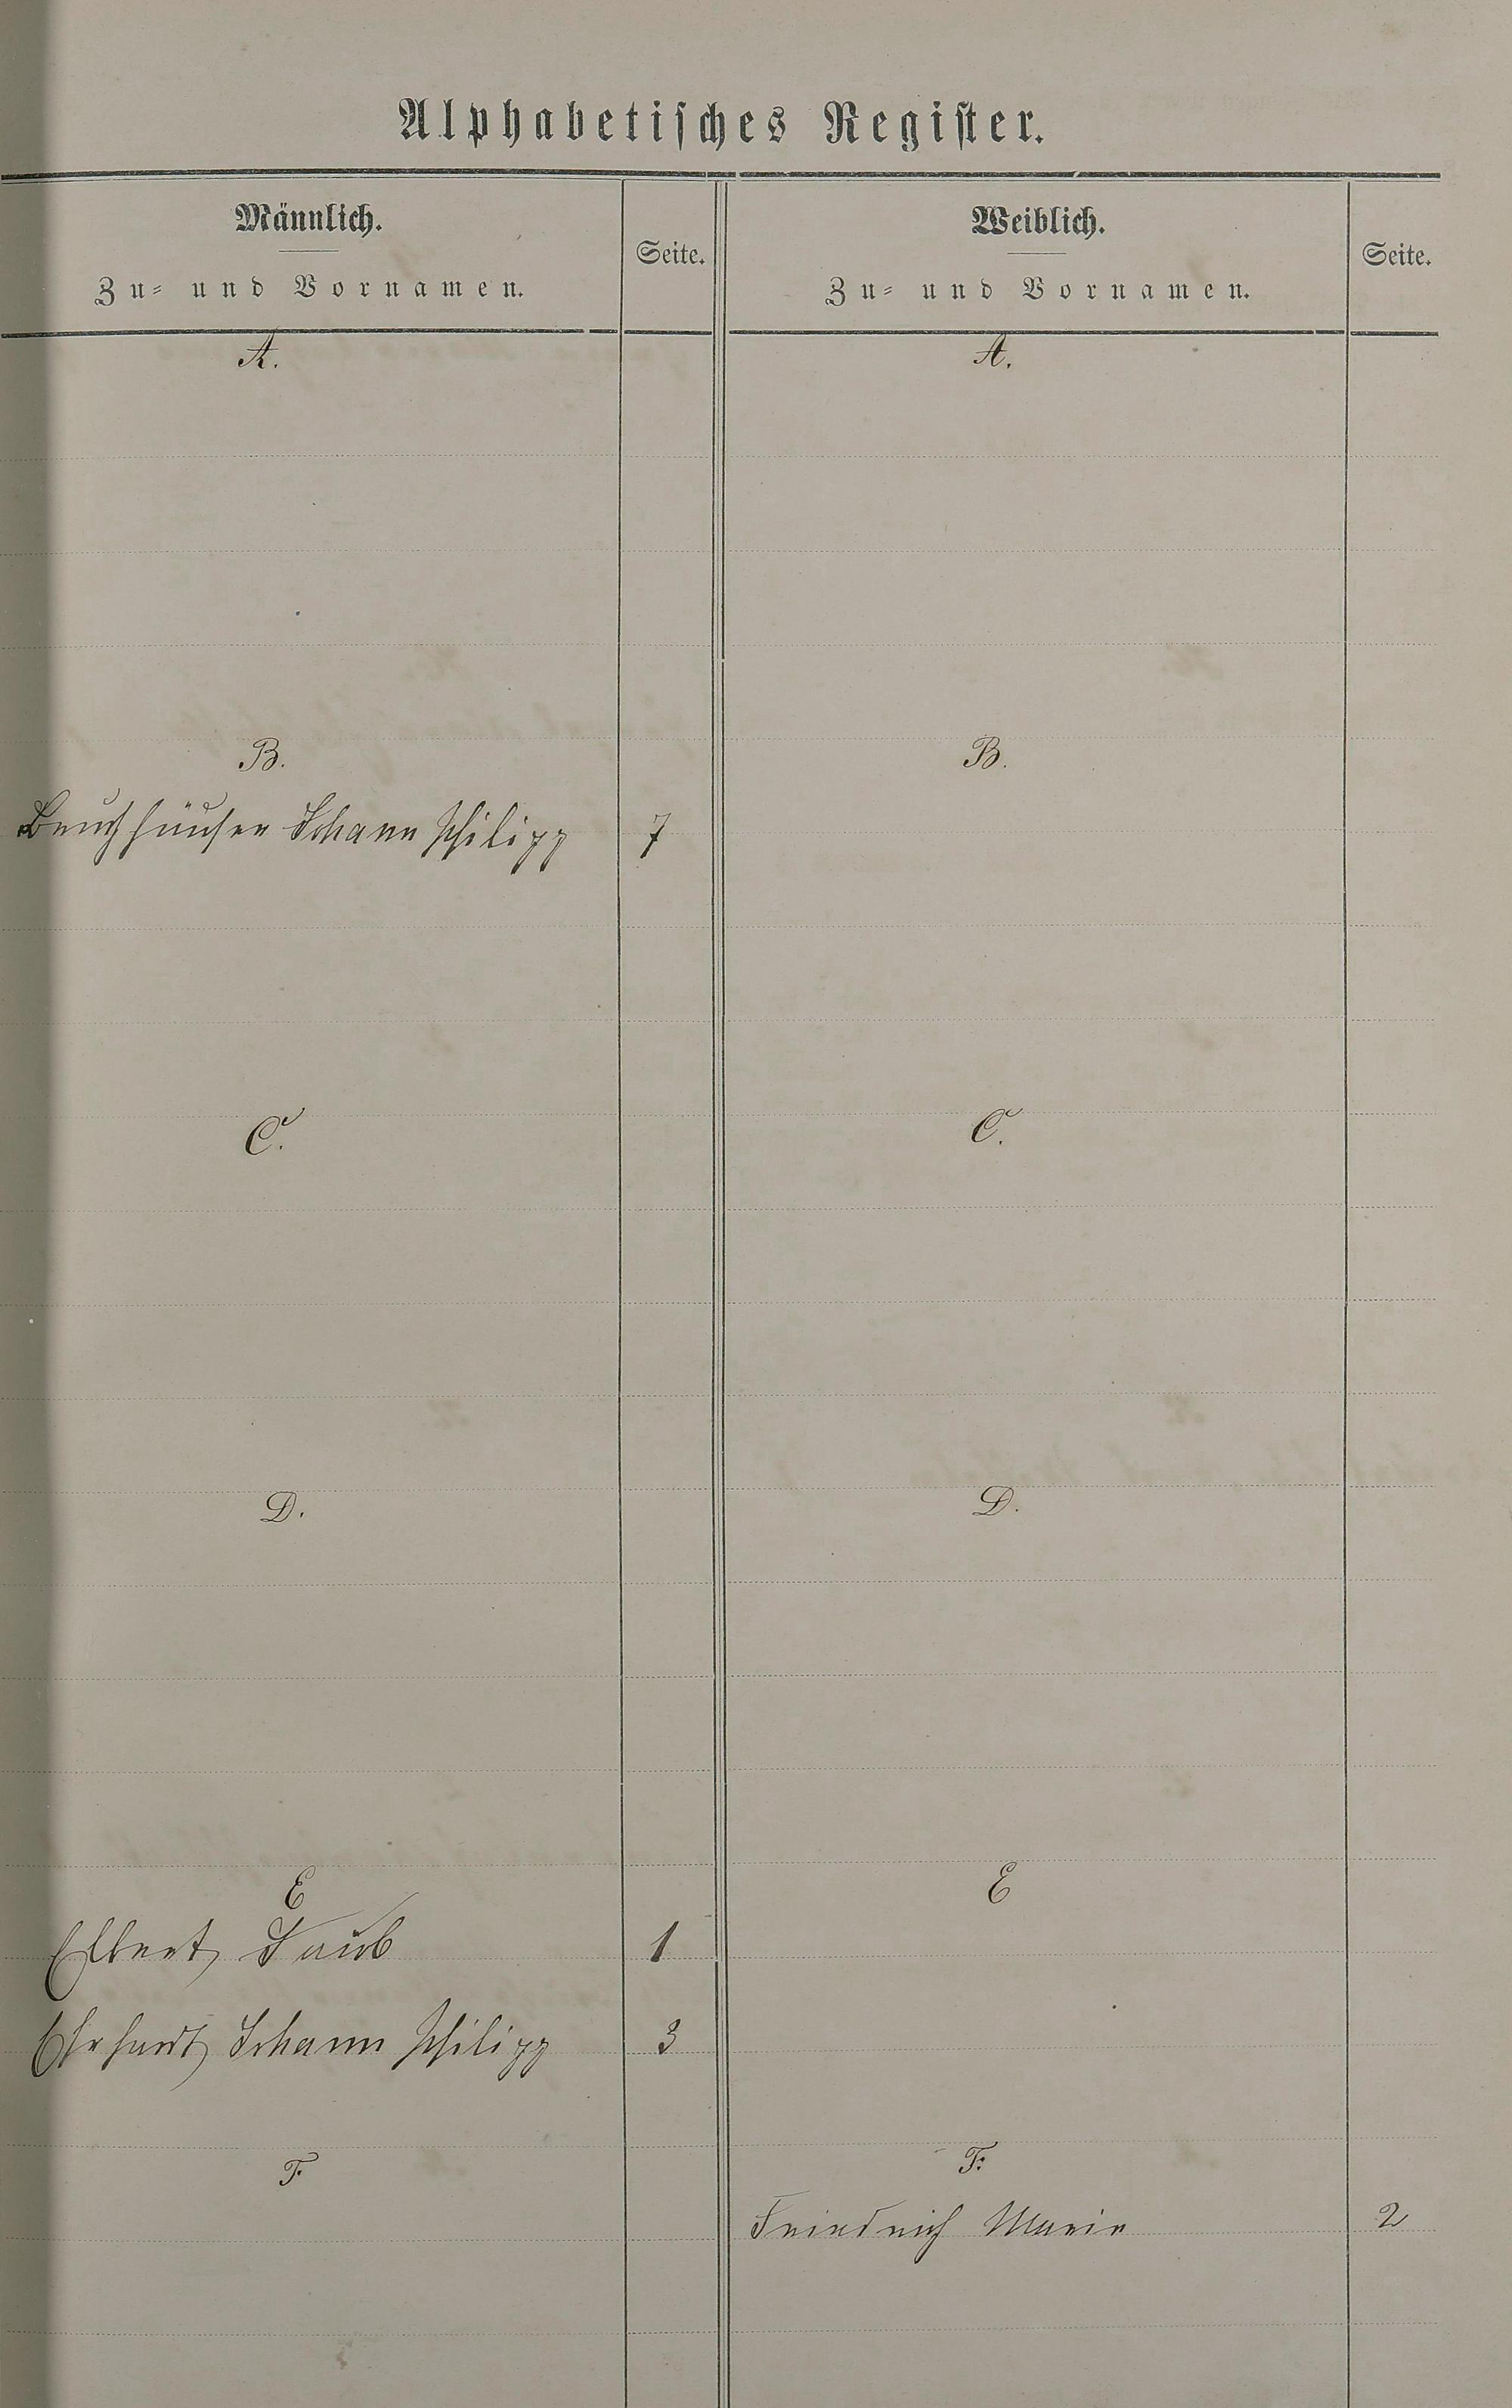 Alphabetisches Register.
Männlich.
Zu- und Vornamen.
Seite.
Weiblich.
Zu- und Vornamen.
Seite.
A.
A.
B.
B.
Bruchhäuser Johann Philipp 7
C.
C.
D.
D.
E
E
Elbert, Jacob 1
Ehrhardt, Johann Philipp 3
F.
F.
Friedrich Marie 2